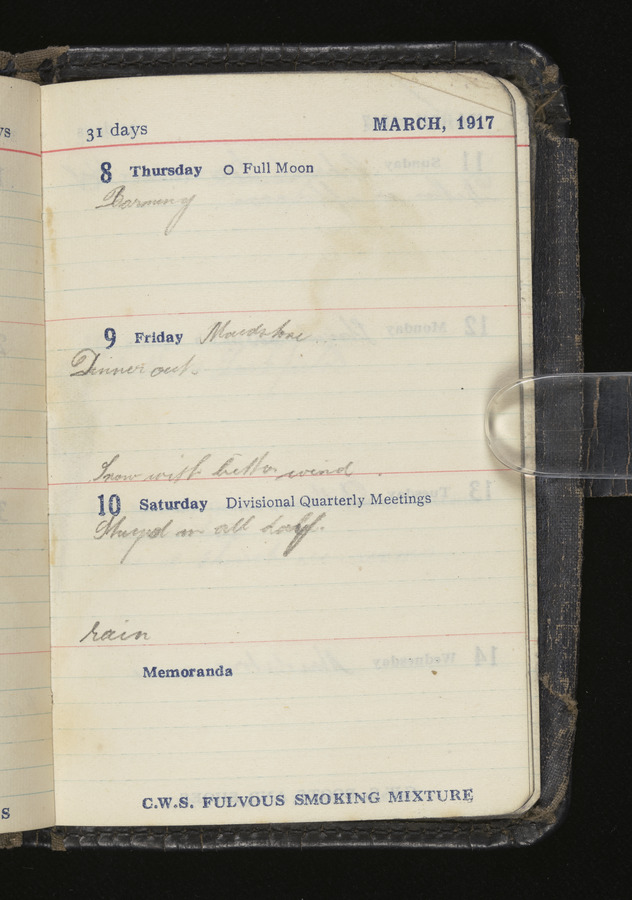 31 days MARCH, 1917
8 Thursday O Full Moon
Barming
9 Friday Maidstone.
Dinner out.
Snow with bitter wind.
10 Saturday Divisional Quarterly Meetings
Stayed in all day.
rain
Memoranda
C.W.S. FULVOUS SMOKING MIXTURE